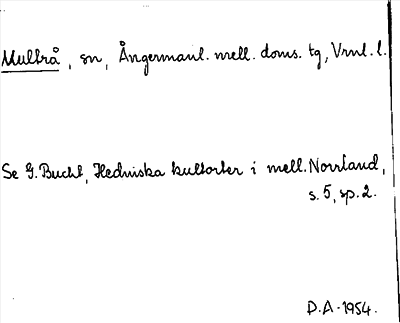 Mullrå, sn, Ångermanl. mell. doms. tg, Vrnl. l.
Se G. Bucht, Hedniska kultorter i mell. Norrland,
s. 5, sp. 2.
D.A. 1954.